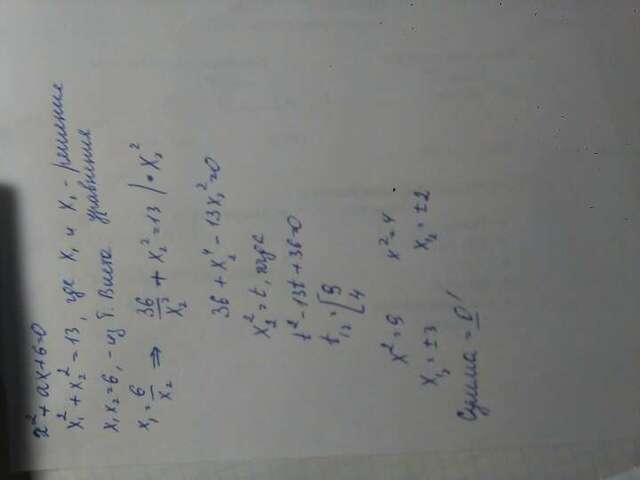 x² + ax + 6 = 0
x₁² + x₂² = 13, где x₁ и x₂ - решения
уравнения
x₁x₂ = 6, - из т. Виета
x₁ = 6/x₂ ⇒ 36/x₂ + x₂² = 13 | • x₂²
36 + x₂⁴ - 13x₂² = 0
x₂² = t, где
t² - 13t + 36 = 0
t₁,₂ = [ 9 4
x² = 9 x² = 4
x₁,₂ = ±3 x₁,₂ = ±2
Сумма = 0!